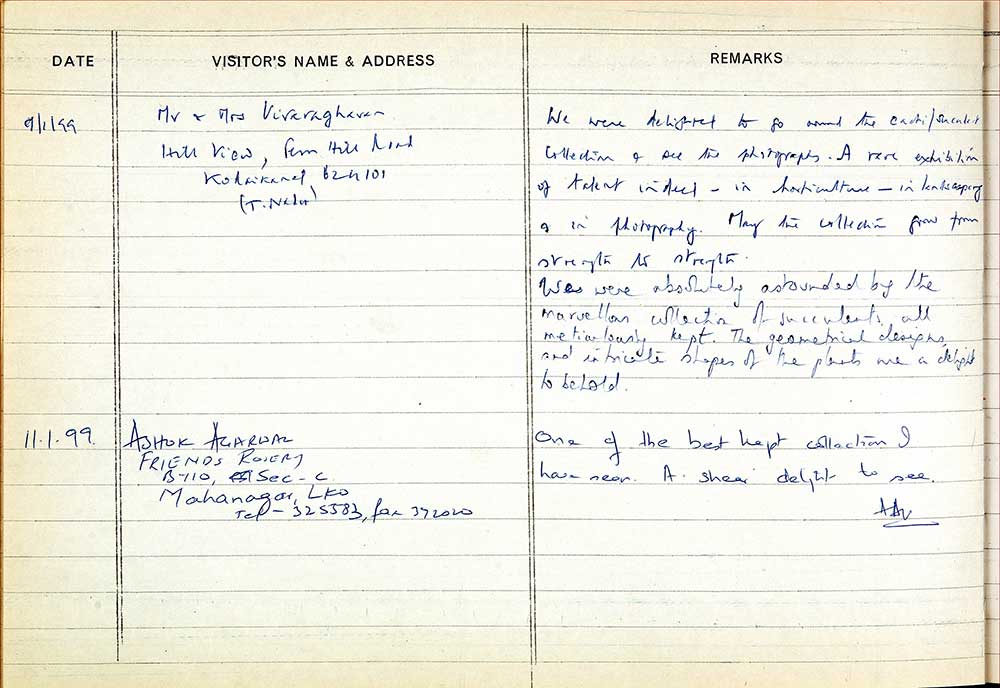 DATE
VISITOR'S NAME & ADDRESS
REMARKS
9/1/99
Mr & Mrs Viraraghavan
Hill View, Fern Hill Road
Kodaikanal 624101
(T. Nadu)
We were delighted to go around the cacti/succulent
collection & see the photographs. A rare exhibition
of talent indeed - in horticulture - in landscaping
& in photography. May the collection grow from
strength to strength.
We were absolutely astounded by the
marvellous collection of succulents, all
meticulously kept. The geometrical designs,
and intricate shapes of the plants are a delight
to behold.
11.1.99.
ASHOK AGARWAL
FRIENDS ROSERY
B-110, Sec - C
Mahanagar, LKO
Tel - 325583, fax 372020
One of the best kept collection I
have seen. A shear delight to see.